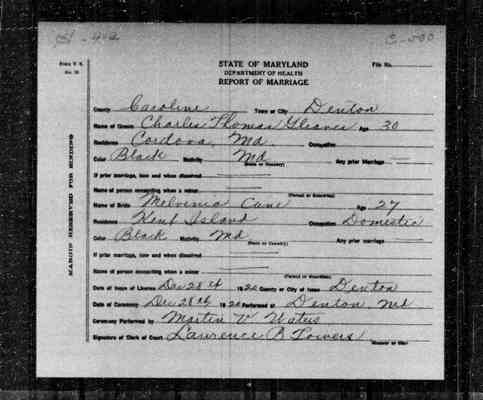 STATE OF MARYLAND
DEPARTMENT OF HEALTH
REPORT OF MARRIAGE
File No.
MARGIN RESERVED FOR BINDING
County Caroline Town or City Denton
Name of Groom Charles Thomas Age 30
Residence Cordova, Md. Occupation
Color Black Nativity Md Any prior Marriage
(State or Country)
If prior marriage, how and when dissolved
Name of person consenting when a minor
(Parent or Guardian)
Name of Bride Melvinia Cane Age 27
Residence Kent Island Occupation Domestic
Color Black Nativity Md Any prior marriage
(State or Country)
If prior marriage, how and when dissolved
Name of person consenting when a minor
(Parent or Guardian)
Date of Issue of License Dec 28th 1920 County or City of Issue Denton
Date of Ceremony Dec 28th 1920 Performed at Denton, Md
Ceremony Performed by Martin V Waters
Signature of Clerk of Court Lawrence B Towers